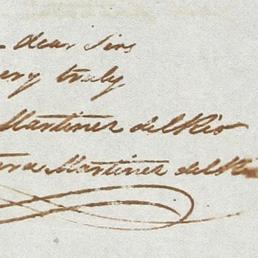 dear Sirs
very truly
Martinez del Rio
Martinez del Rio